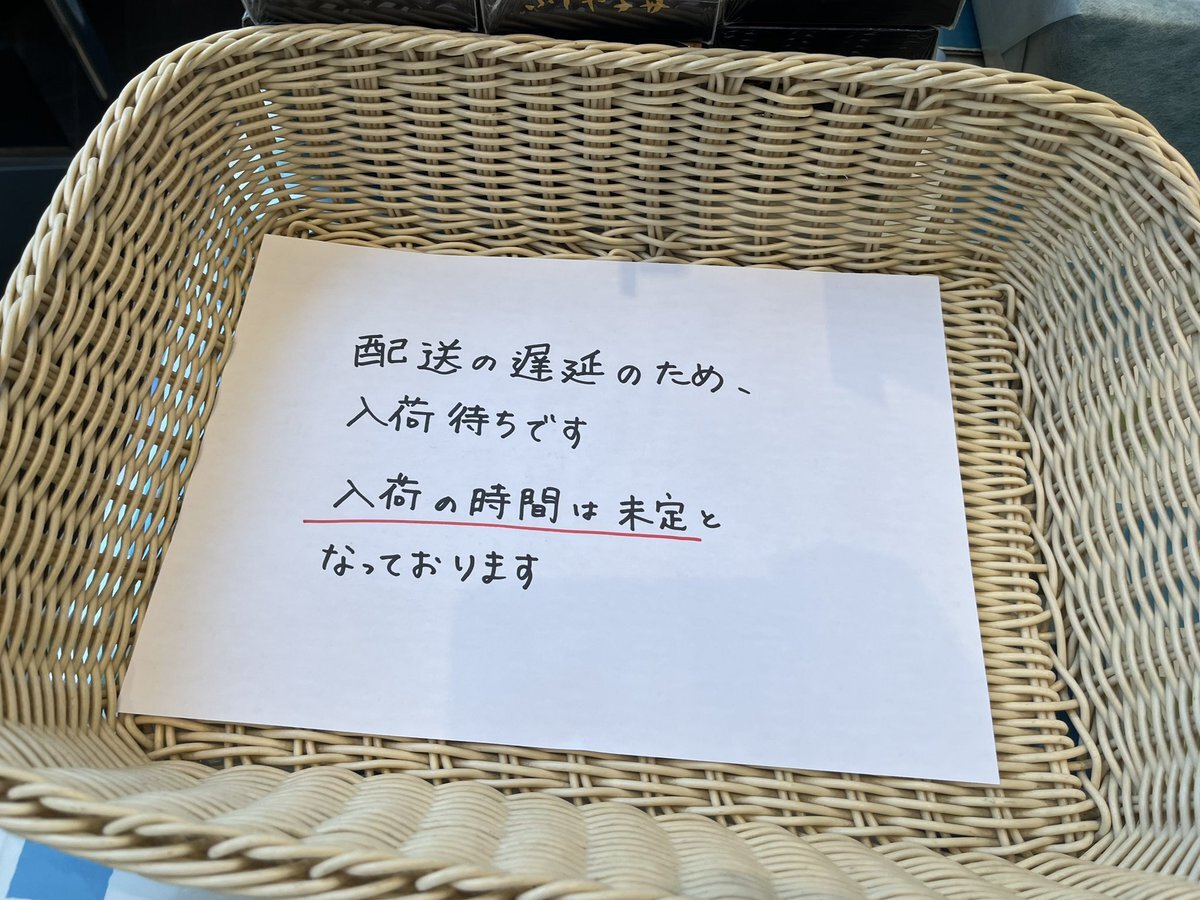 配送の遅延のため、
入荷待ちです
入荷の時間は未定と
なっております